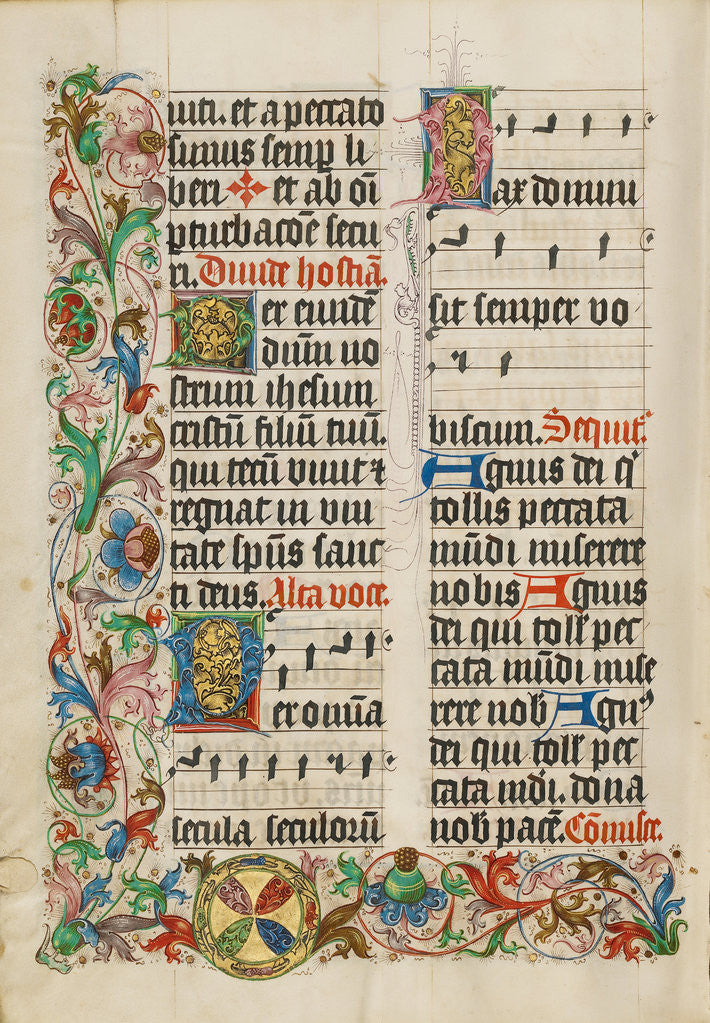 iuti. et a peccato
simus semp̲ li
beri ✠ et ab oī
p̲turbacōe secu
ri. Diuide hostiā.
Per eundē
dūm no
strum ihesum
cristū filiū tuū.
qui tecū viuit ⁊
regnat in vni
tate sp̄us sanc
ti deus. Alta voce.
Per omīa
secula seculorū
Pax domini
sit semper vo
biscum. Sequit̉.
Agnus dei q̇
tollis peccata
mūdi miserere
nobis Agnus
dei qui toll̉ pec
cata mūdi mise
rere nob̉ Agn̉
dei qui toll̉ pec
cata mūdi. dona
nob̉ pacē. Cōmisce.